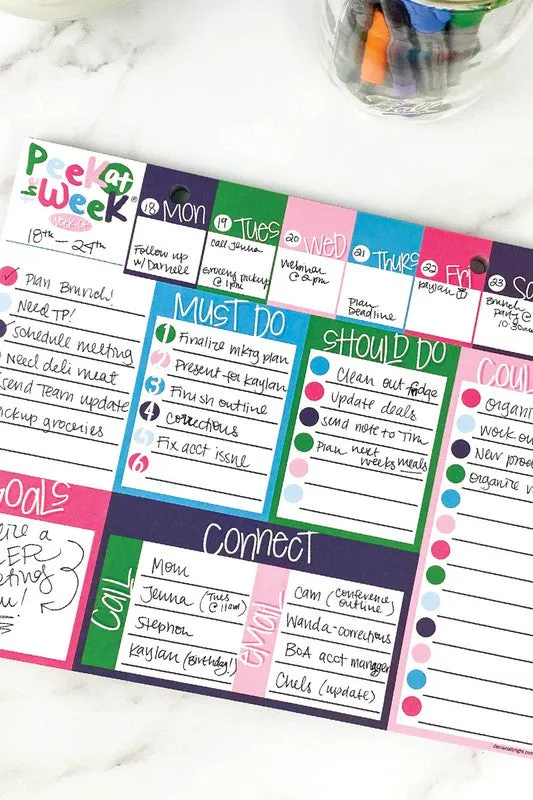 Peek at
the Week®
WEEK OF
18th – 24th
18 Mon
Follow up
w/ Darnell
19 Tues
Call Jenna
Grocery pickup
@ 1pm
20 Wed
Webinar
@ 2pm
21 Thurs
Plan
Deadline
22 Fri
Kaylan
23 Sa
Brunch
Party @
10:30am
Plan Brunch!
Need TP!
Schedule meeting
Need deli meat
Send Team update
Pickup groceries
MUST DO
1 Finalize mktg plan
2 Present for Kaylan
3 Finish outline
4 Corrections
5 Fix acct issue
6
SHOULD DO
Clean out fridge
Update deals
Send note to Tim
Plan next
weeks meals
COUL
Organi
Work ou
New prod
Organize
GOALS
a
Connect
CALL
Mom
Jenna (Tues @ 11am)
Stephon
Kaylan (Birthday!)
eMAIL
Cam (conference outline)
Wanda-corrections
BoA acct manager
Chels (update)